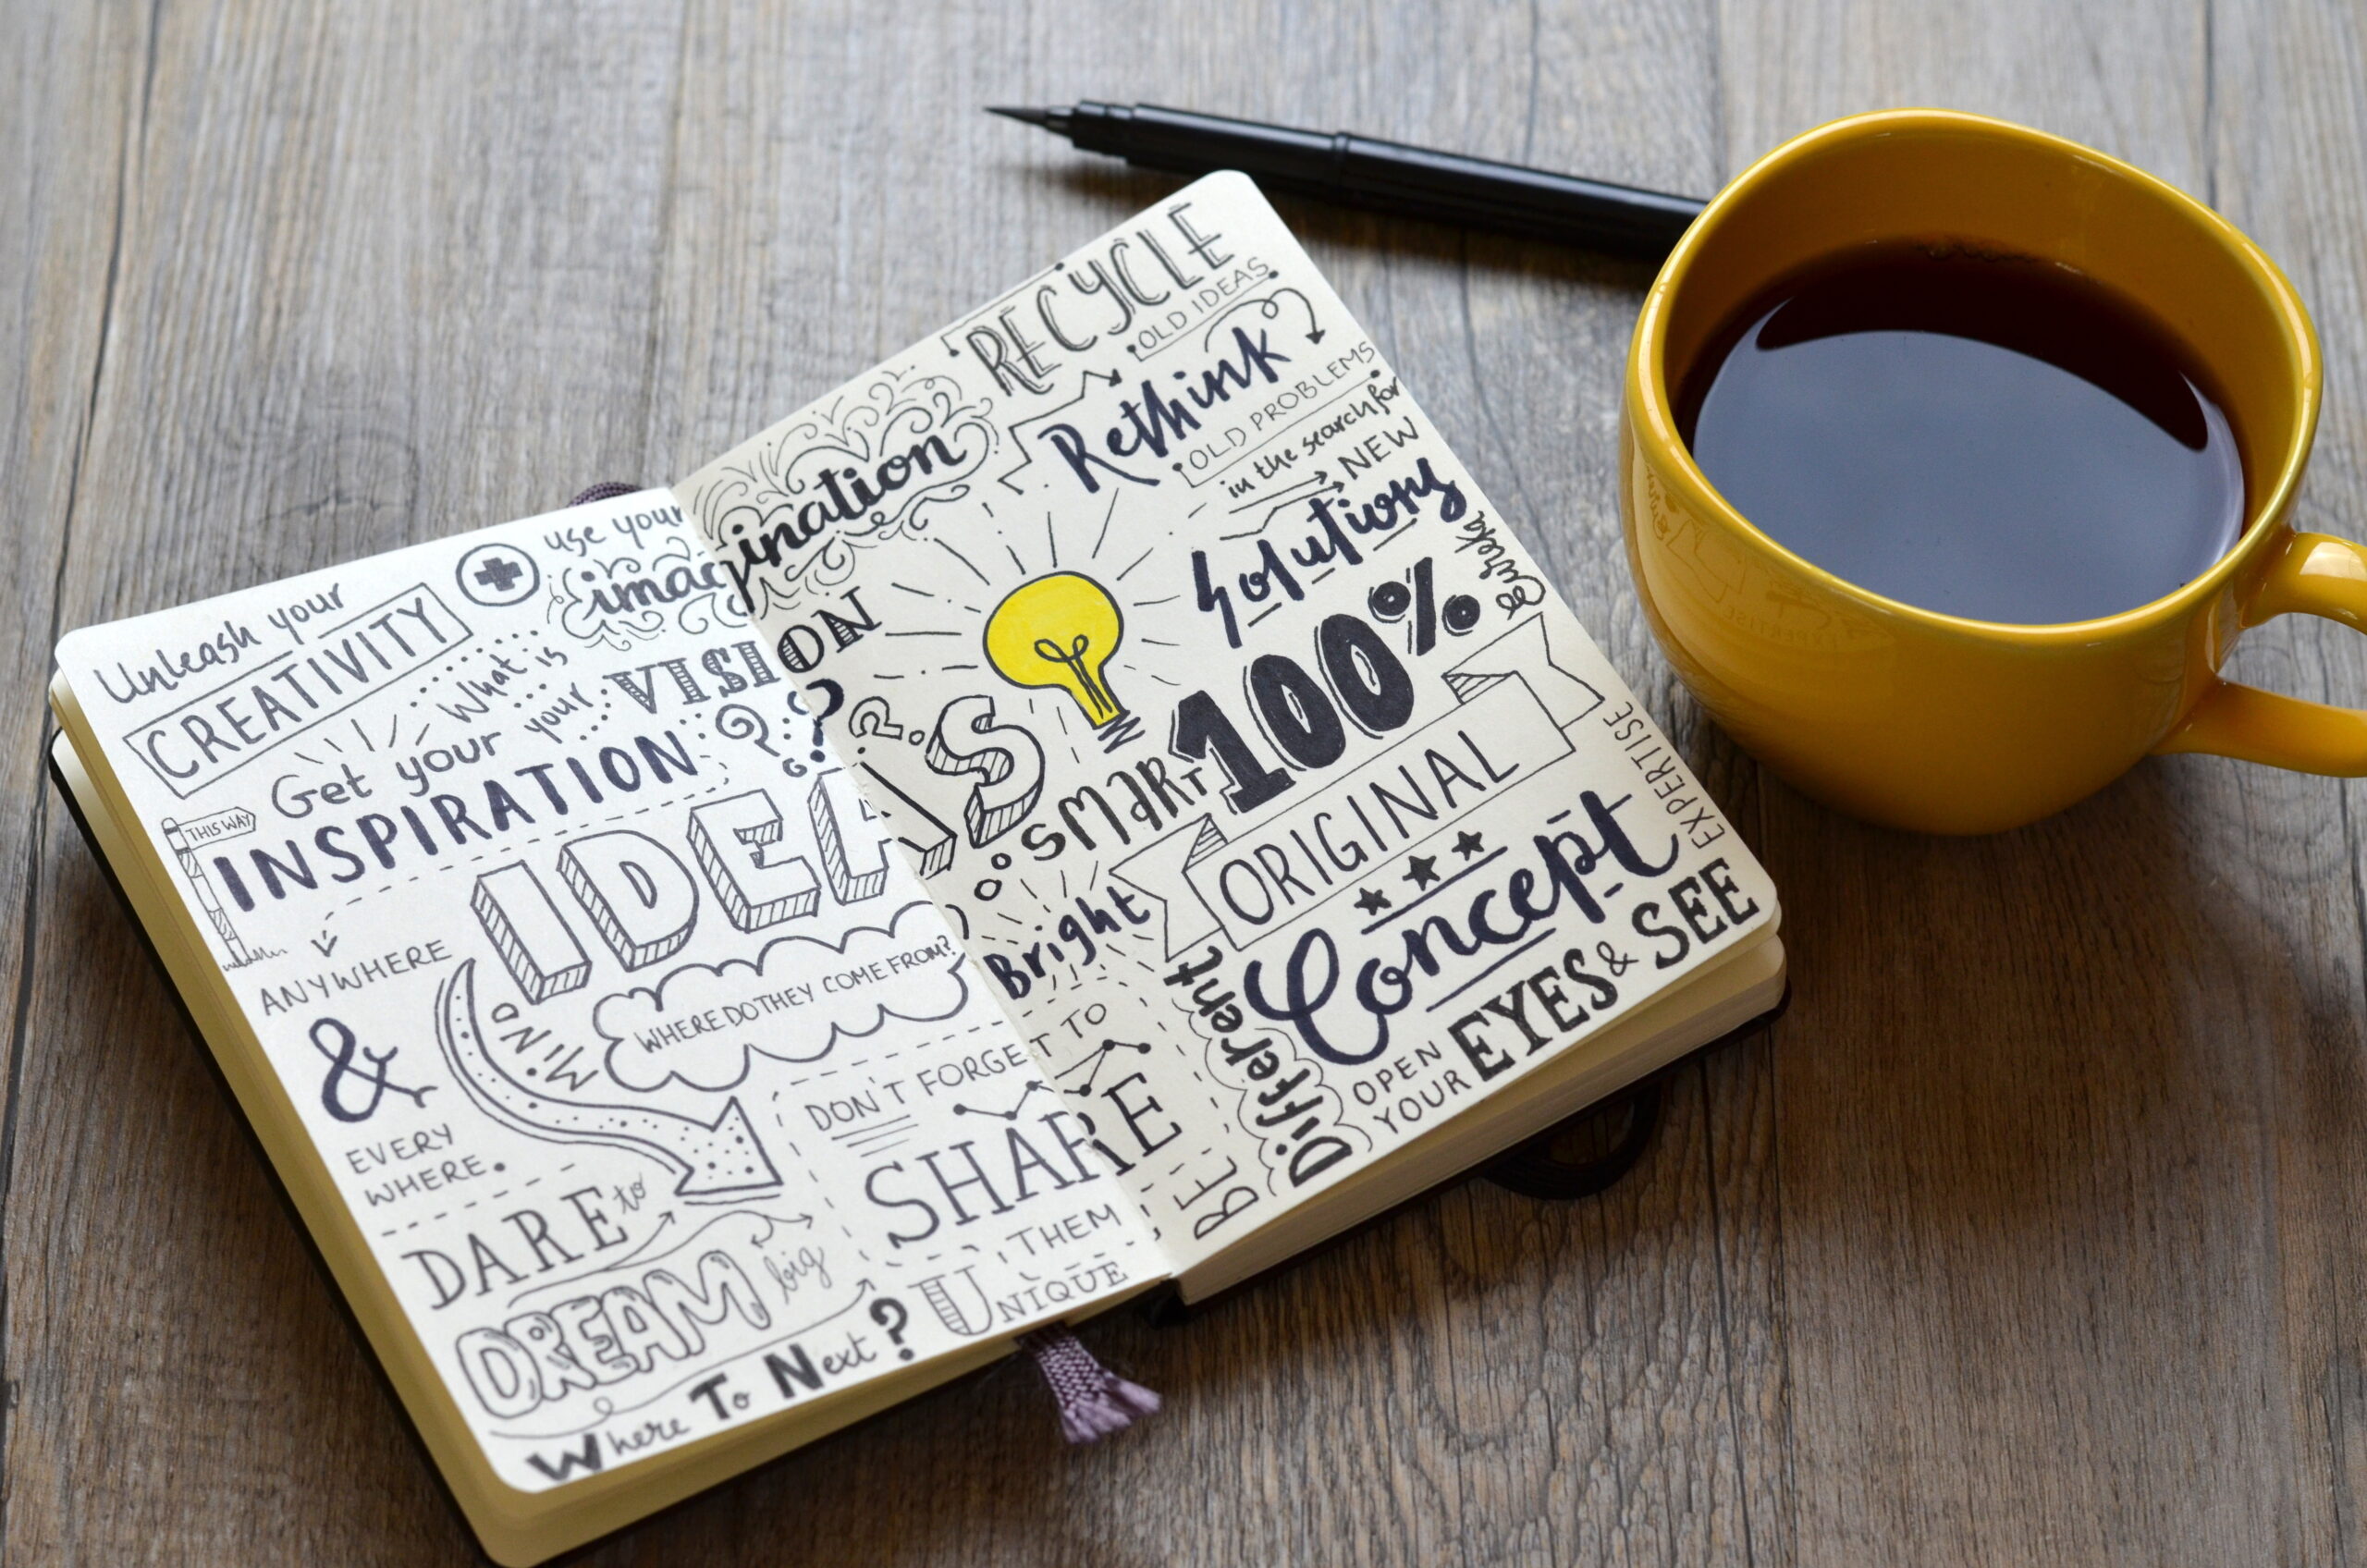 Unleash your
CREATIVITY
use your
imagination
What is
your
VISION
??
Get your
INSPIRATION
THIS WAY
ANYWHERE
&
EVERY
WHERE.
IDEAS
?
MIND
WHERE DO THEY COME FROM?
DARE to
DREAM big
Where To Next?
DON'T FORGET TO
SHARE
THEM
UNIQUE
RECYCLE
OLD IDEAS
Rethink
OLD PROBLEMS
in the search for
NEW
Solutions
Eureka
SMART
100%
ORIGINAL
Concept
EXPERTISE
Bright
BE
Different
OPEN
YOUR EYES & SEE